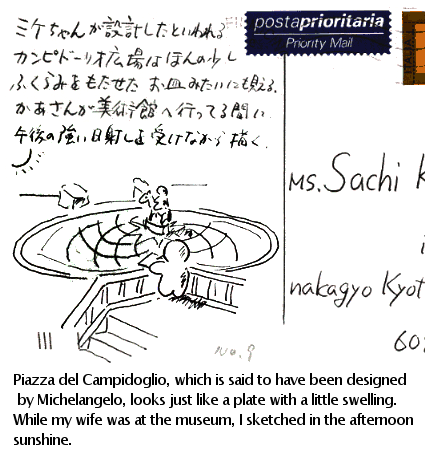 ミケちゃんが設計したといわれる
カンピドーリオ広場はほんの少し
ふくらみをもたせた お皿みたいにも見える.
かあさんが美術館へ行ってる間に
午後の強い日射しを受けながら描く
postaprioritaria
Priority Mail
Ms. Sachi
nakagyo Kyot
60
No. 9
Piazza del Campidoglio, which is said to have been designed
by Michelangelo, looks just like a plate with a little swelling.
While my wife was at the museum, I sketched in the afternoon
sunshine.